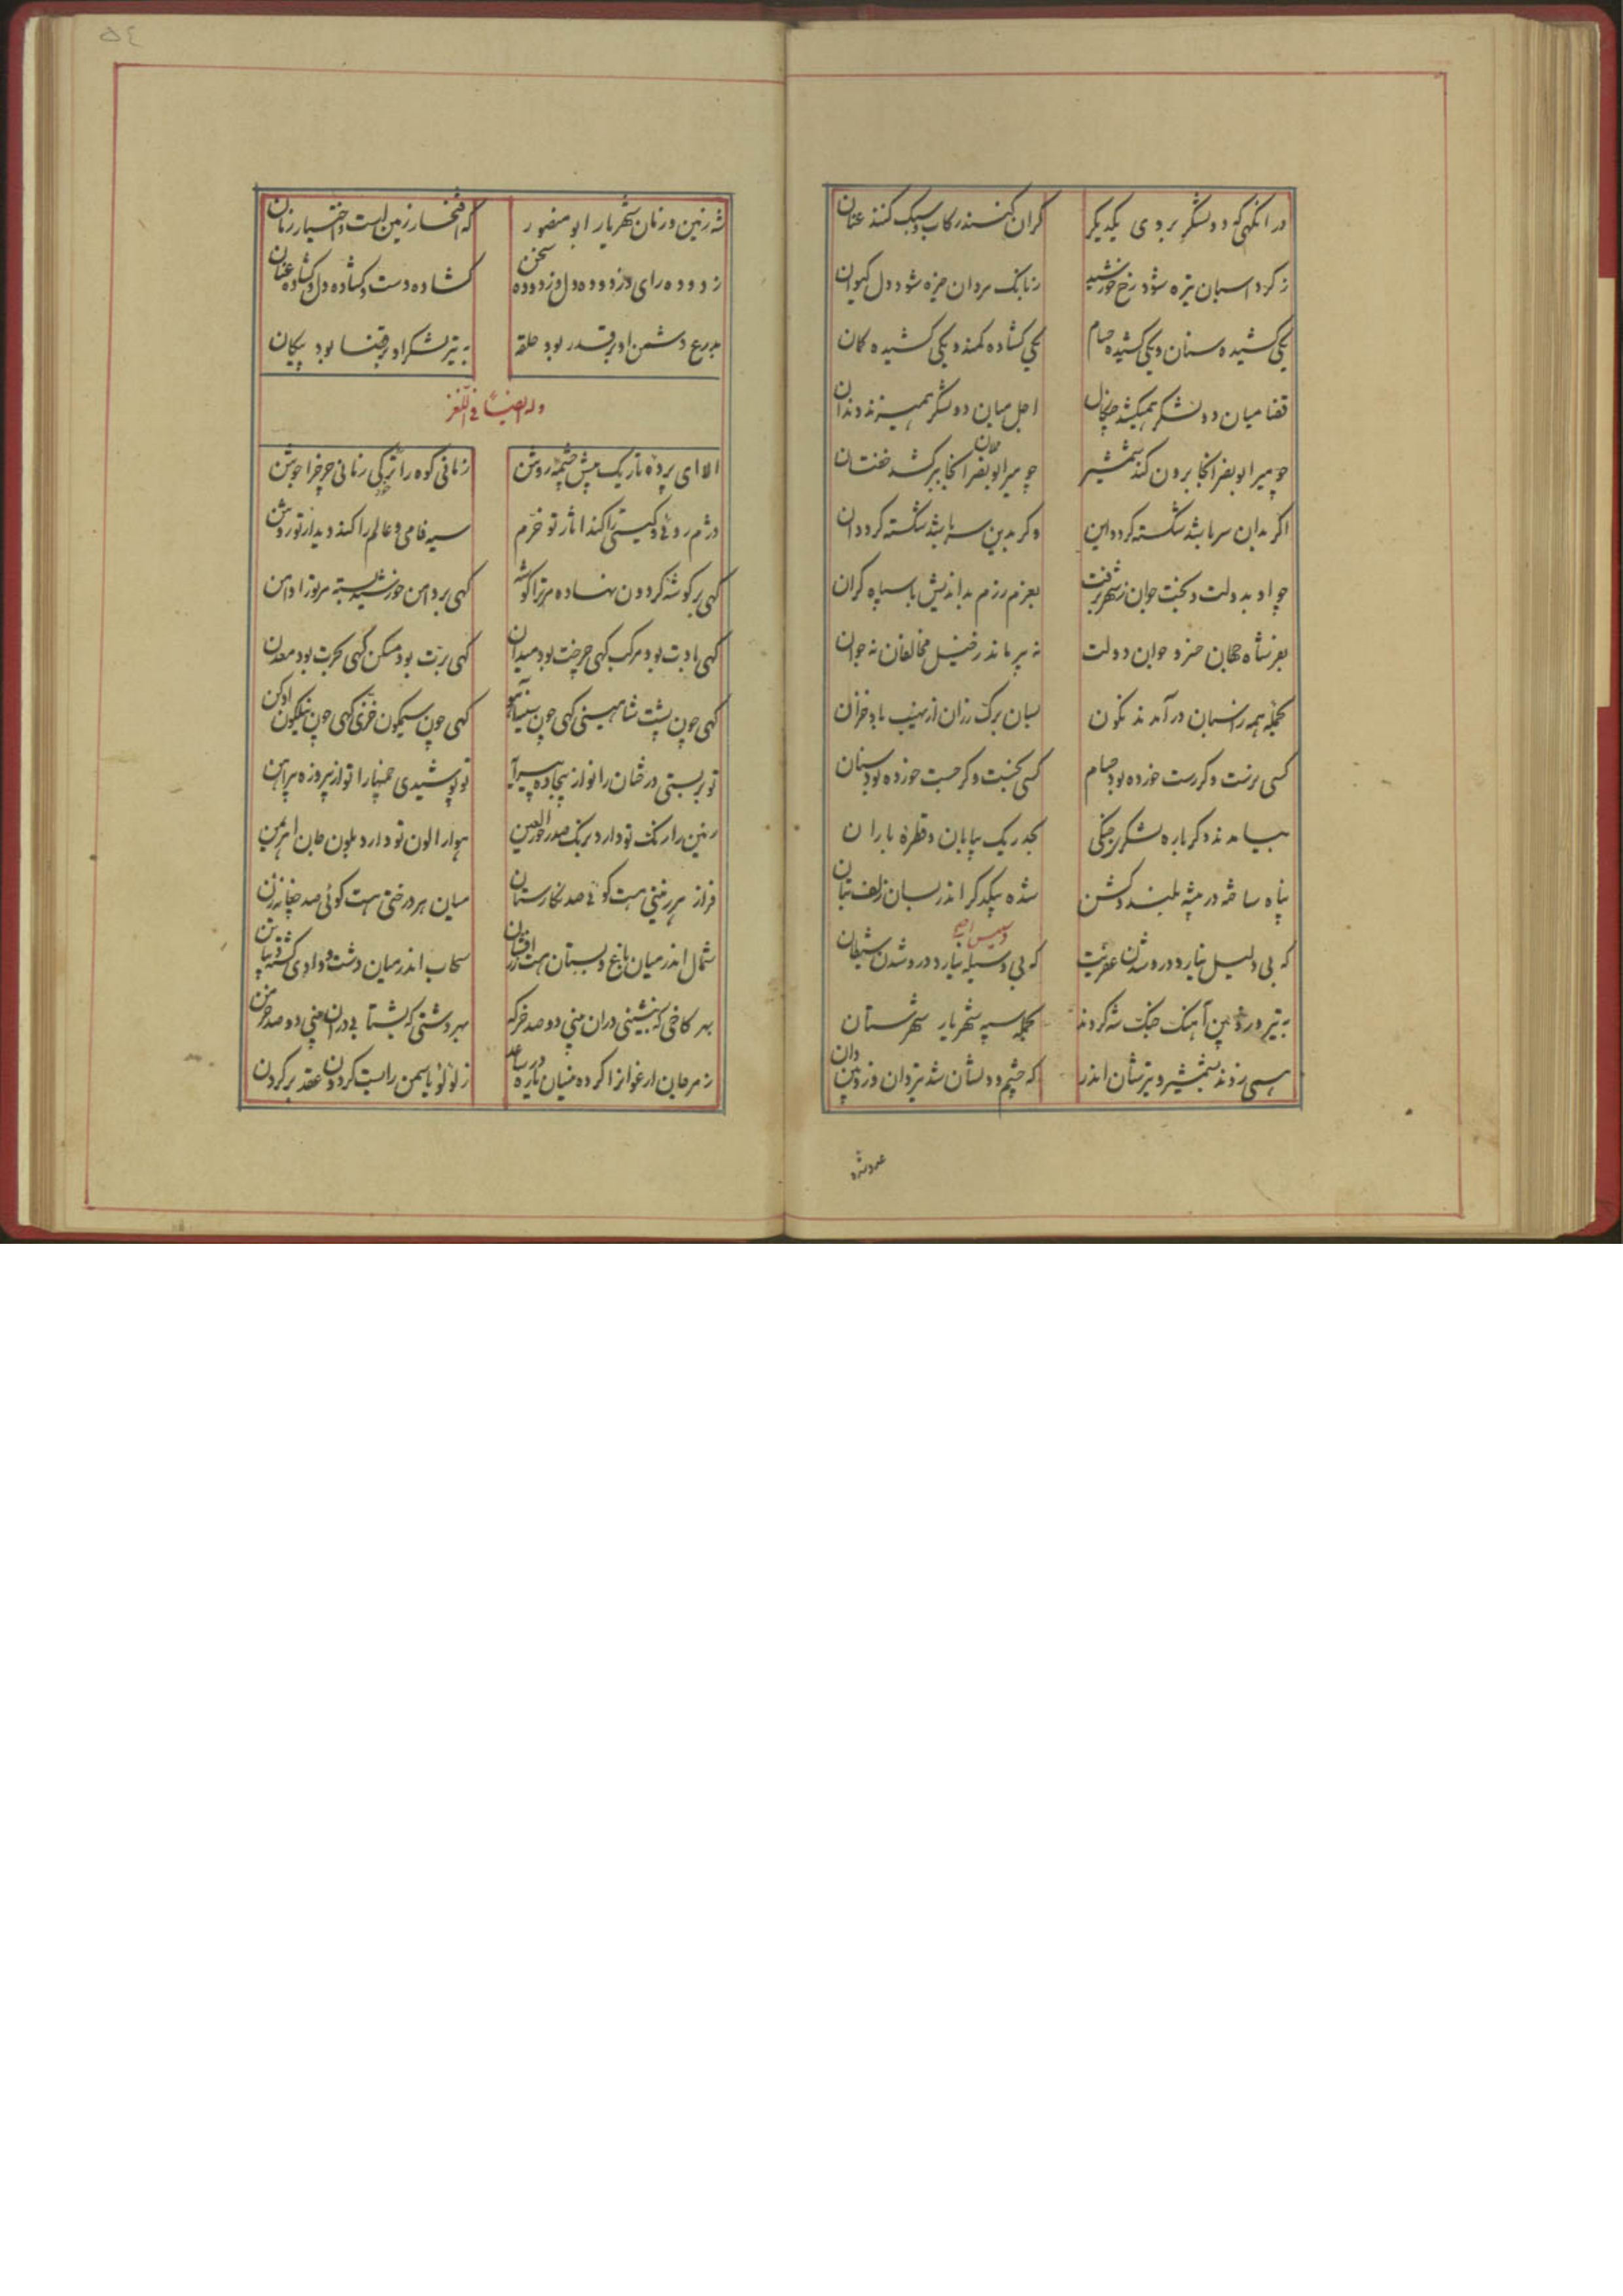 در انگهی که دو لشکر بروی یکدیگر گران کنند رکاب و سبک کنند عنان
ز گرد اسبان تیره شود رخ خورشید ز بانگ مردان خیره شود دل کیوان
یکی کشیده سنان و یکی کشیده حسام یکی کشاده کمند و یکی کشیده کمان
قضا میان دو لشکر همیکشد چنگال اجل میان دو لشکر همیزند دندان
چو میر ابو نصر انجا برون کند شمشیر چو میر ابو نصر انجا برکشد خفتان
اگر بدان سر باشد شکسته گردد این وگر بدین سر باشد شکسته گردد ان
چو او به دولت و بخت جوان ز شهر برفت بعزم رزم بداندیش با سپاه گران
بفر شاه جهان خسرو جوان دولت نه پیر ماند ز خیل مخالفان نه جوان
بجمله همه ز اسبان در آمدند نگون بسان برگ رزان از نهیب باد خزان
کسی برفت وگر رست خورده بود حسام کسی بخست وگر جست خورده بود سنان
بیامدند دگرباره لشکر جنگی بحد ریک بیابان و قطره باران
پناه ساخته در بیشه بلند و گشن شده یکدگر اندر بسان زلف بتان
که بی دلیل نیارد درو شدن عفریت که بی وسیله نیارد درو شدن شیطان
به تیر و زوپین آهنگ جنگ شه کردند بجمله سپه شهریار شهرستان
همی زدند بشمشیر و تیرشان اندر که چشم و دلشان شد تیردان و زوپین دان
عدو شده
۵٤
شه زمین و زمان شهریار ابو منصور که افتخار زمین است و اختیار زمان
زدوده رای و زدوده دل و زدوده سخن کشاده دست و کشاده دل و کشاده عنان
بدرع دشمن او بر قدر بود حلقه به تیر لشکر او بر قضا بود پیکان
وله ایضاً فی اللغز
الا ای پرده تاریک پیش چشمه روشن زمانی کوه را ترکی زمانی چرخ را جوشن
دژم روئی و گیتی را کند اثار تو خرم سیه فامی و عالم را کند دیدار تو روشن
گهی بر گوشه گردون نهاده مر ترا گوشه گهی بر دامن خورشید بسته مر ترا دامن
گهی بادت بود مرکب گهی چرخت بود میدان گهی برت بود مسکن گهی بحرت بود معدن
گهی چون پشت شاهینی گهی چون سینه آهو گهی چون سیمگون خزی گهی چون نیلگون ادکن
تو بربستی درختان را نو از بیجاده پیرایه تو پوشیدی چمنها را نو از پیروزه پیراهن
زمین را رنگ تو دارد برنگ صدر حور العین هوا را لون تو دارد بلون جان اهریمن
فراز هر زمینی هست گوئی صد نگارستان میان هر درختی هست گوئی صد چغانه زن
شمال اندر میان باغ و بستان هست زر افشان سحاب اندر میان دشت و وادی گشته
بهر کاخی که بنشینی دران بینی دو صد خرگه بهر دشتی که بشتابی دران بینی دو صد خرمن
ز مرجان ارغوانرا کرده نیسان یاره در ساعد ز لولو یاسمن راست گردون عقد بر گردن